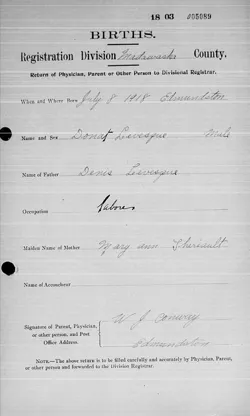 18 03 J05089
BIRTHS.
Registration Division Madawaska County.
Return of Physician, Parent or Other Person to Divisional Registrar.
When and Where Born July 8 1918 Edmundston
Name and Sex Donat Levesque Male
Name of Father Denis Levesque
Occupation Labor
Maiden Name of Mother Mary Ann Theriault
Name of Accoucheur
W. J. Conway
Signature of Parent, Physician,
or other person, and Post
Office Address.
Edmundston
NOTE.—The above return is to be filled carefully and accurately by Physician, Parent,
or other person and forwarded to the Division Registrar.